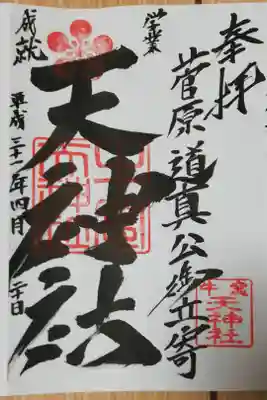 奉拝
菅原道真公御立寄
学業
天神社
成就
平成三十一年四月二十日
天神社